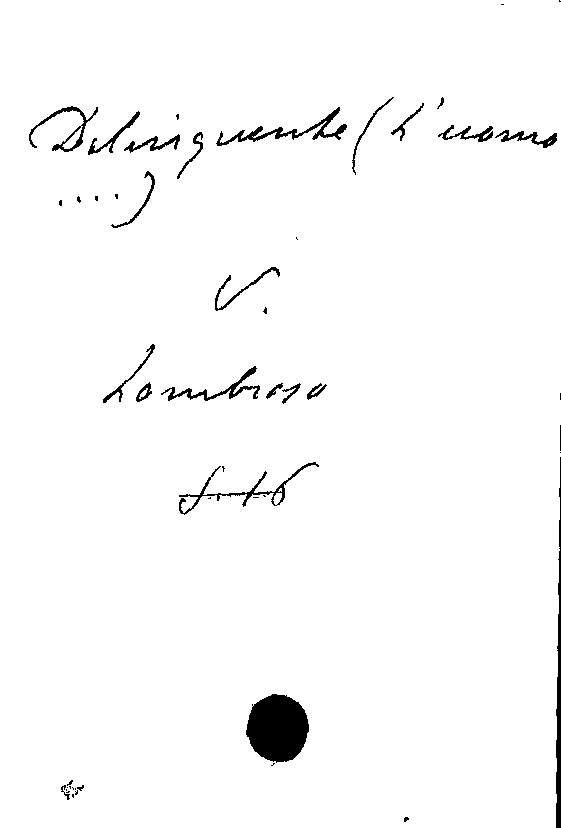 Delinquente (L'uomo
....)
V.
Lombroso